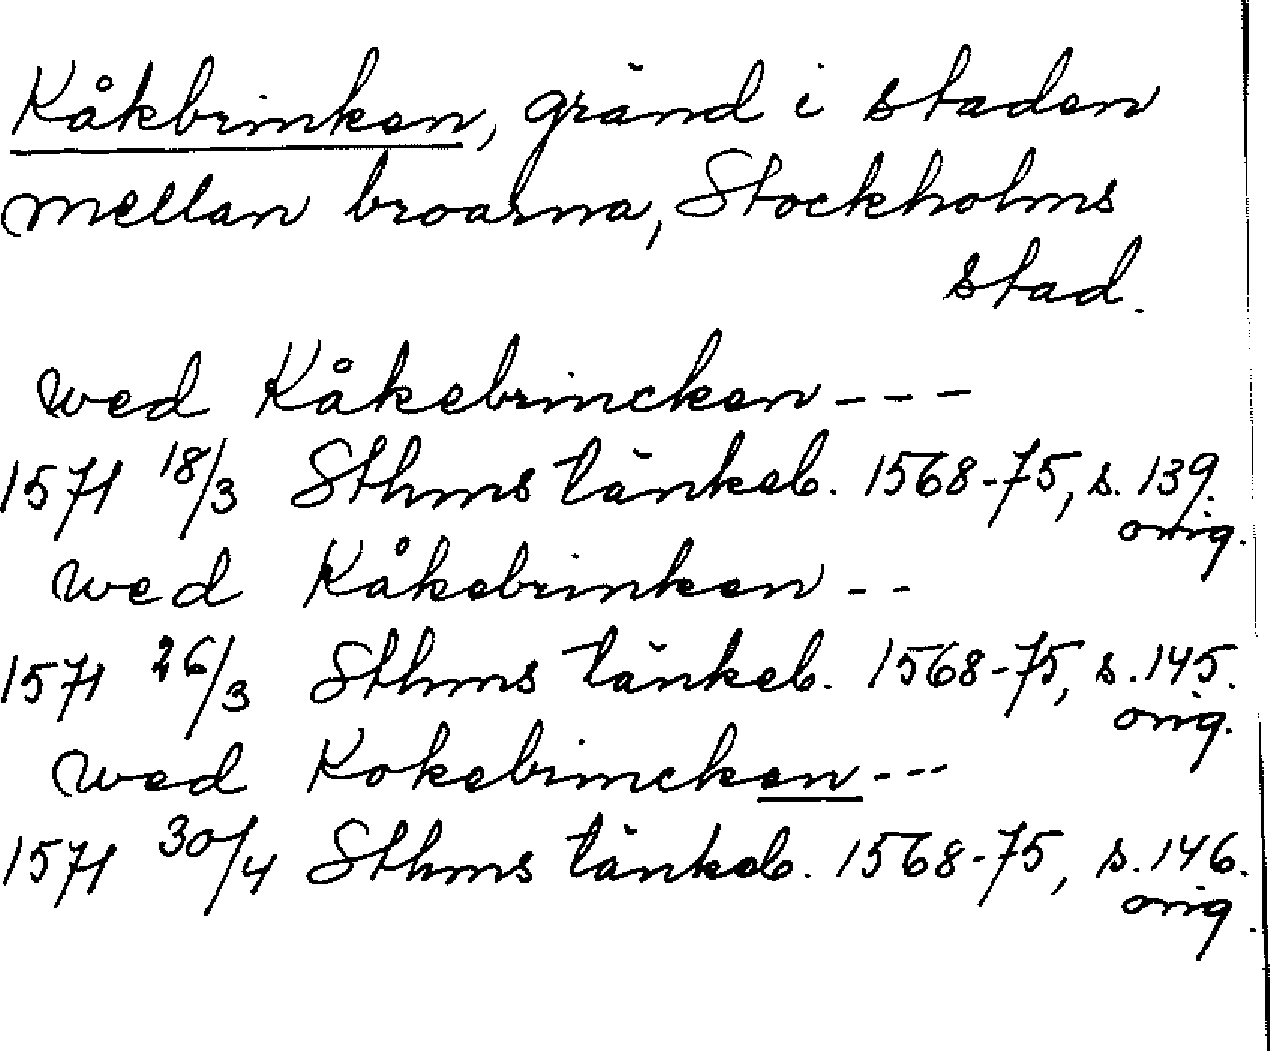 Kåkbrinken, gränd i staden
mellan broarna, Stockholms
stad.
wed Kåkebrincken - - -
1571 18/3 Sthms tänkeb. 1568-75, s. 139.
orig.
wed Kåkebrinken - -
1571 26/3 Sthms tänkeb. 1568-75, s. 145.
orig.
wed Kokebrincken - - -
1571 30/4 Sthms tänkeb. 1568-75, s. 146.
orig.